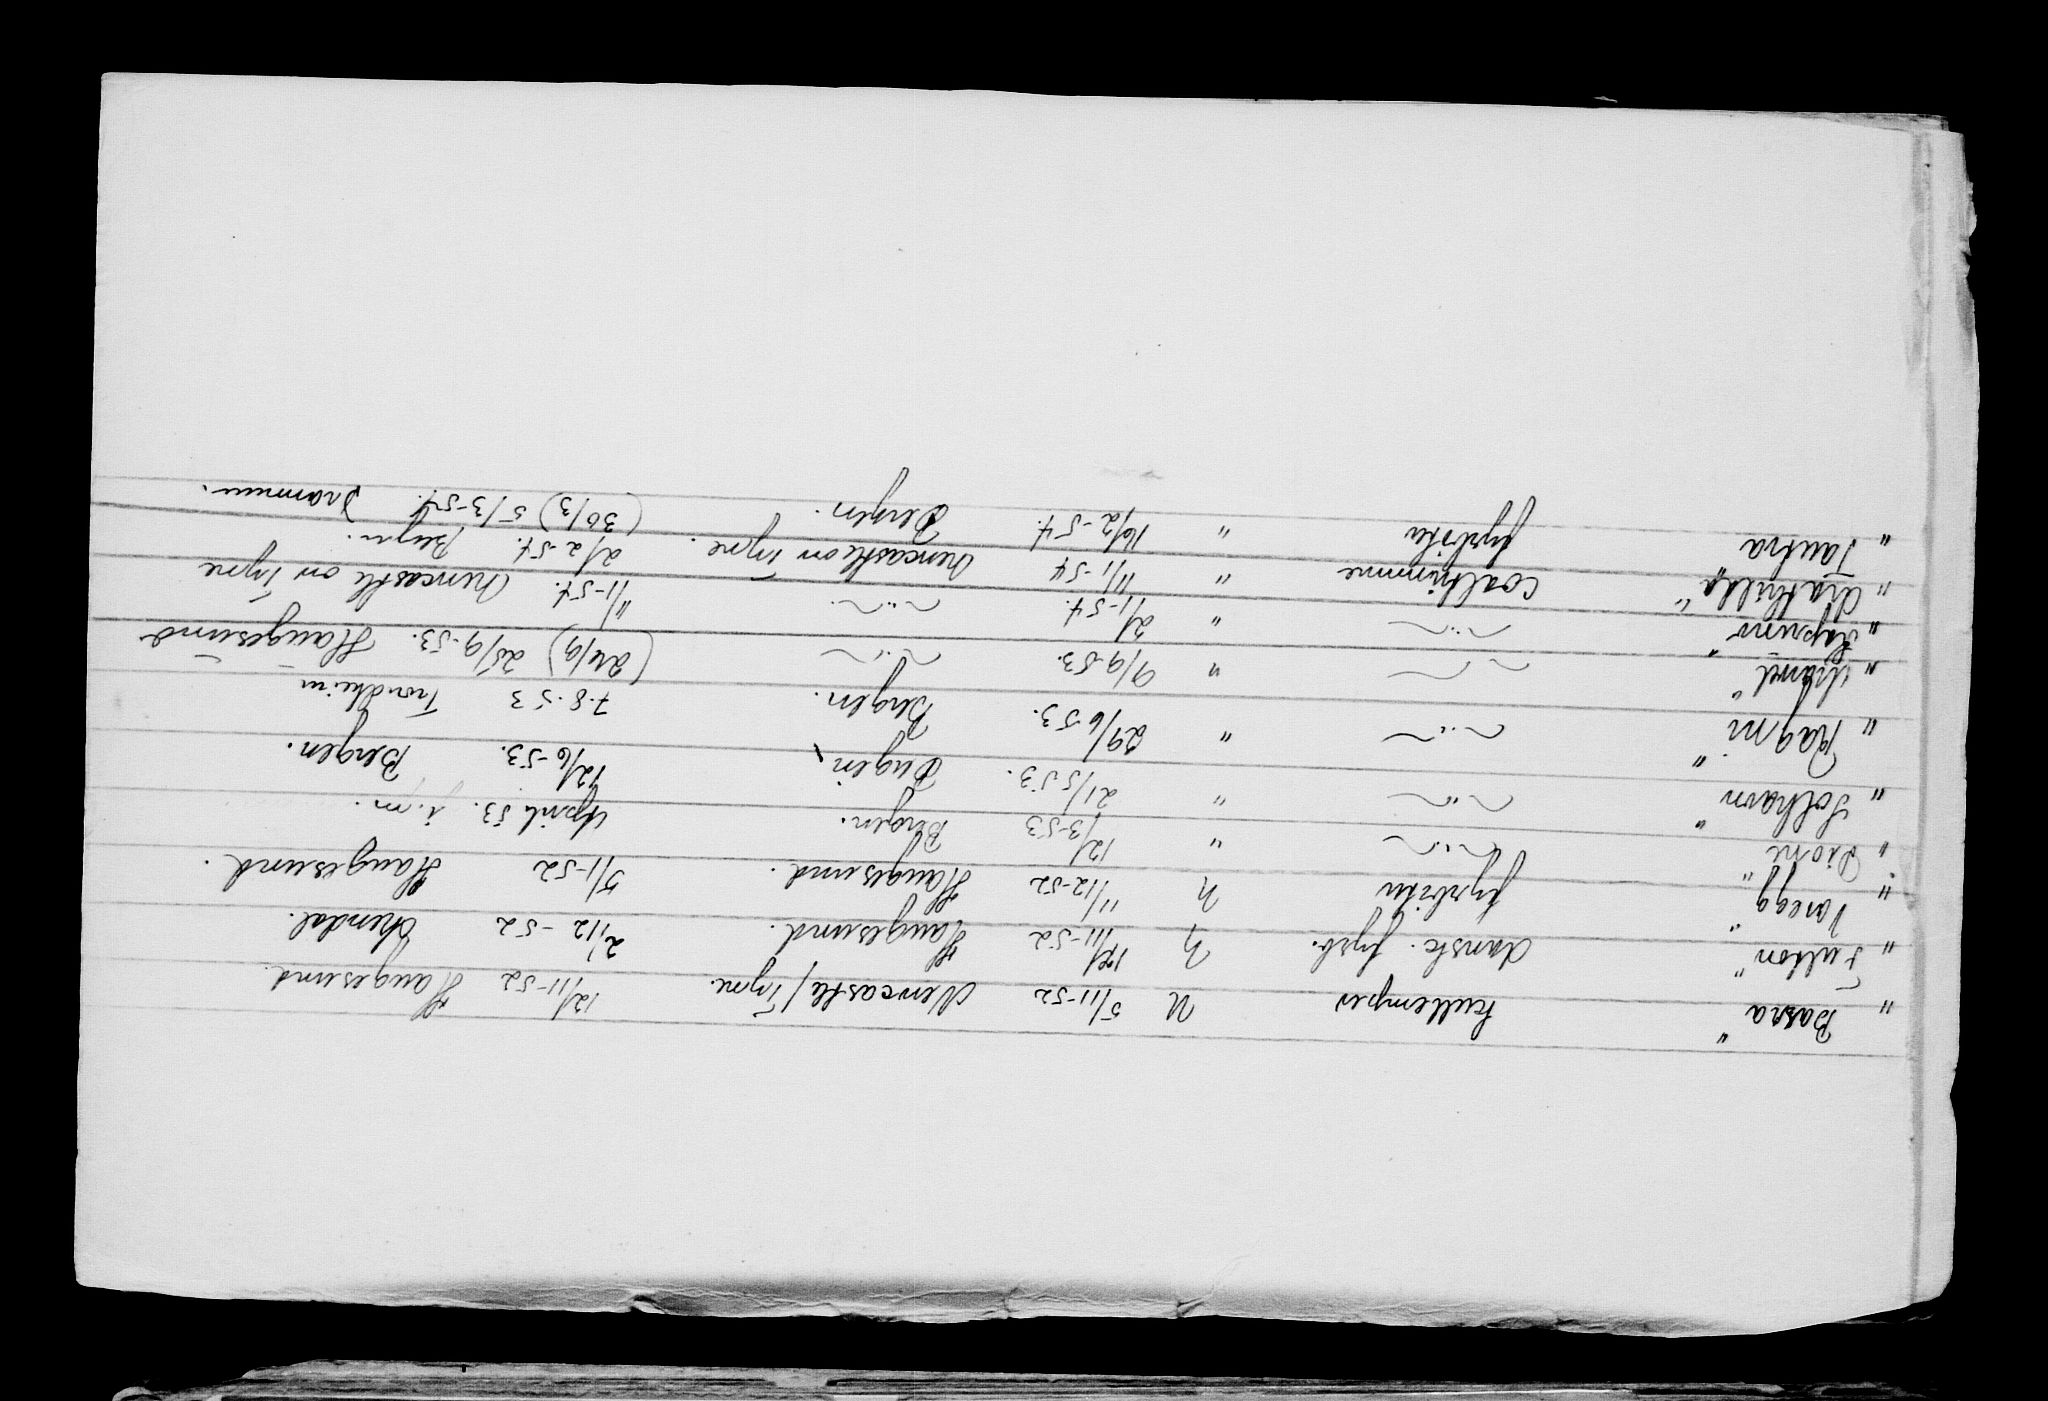 " Basra " kullemper N 5/11-52 Newcastle/Tyne. 12/11-52 Haugesund.
" Fulton " dansk. fyrb. N 12/11-52 Haugesund. 2/12-52 Arendal.
" Varegg " fyrböter N 11/12-52 Haugesund. 5/1-52 Haugesund.
" Dione " -"- " 12/3-53 Bergen. April 53.
" Solhavn " -"- " 21/5 53. Bergen 12/6-53. Bergen.
" Ragni " -"- " 29/6 53. Bergen. 7-8-53 Trondheim
" " " 9/9-53. -"- (24/9) 25/9-53. Haugesund
" " -"- " 2/1-54. -"- 11/1-54. Newcastle on Tyne
" Ragnhild " coaltrimme " 11/1-54 Newcastle on Tyne. 2/2-54. Bergen.
" Tautra fyrböter " 16/2-54. Bergen. (30/3) 5/3-54. Drammen.